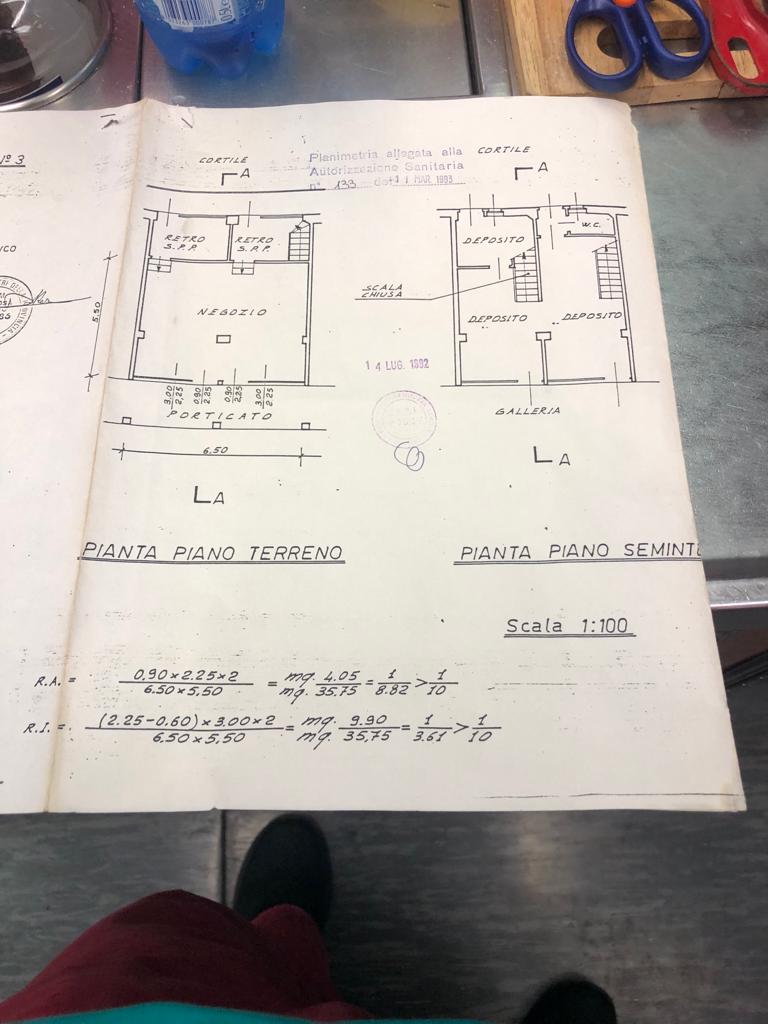 Nº 3
CORTILE
A
Planimetria allegata alla
Autorizzazione Sanitaria
nº 133 del 1 MAR. 1993
CORTILE
A
RETRO
S.P.P.
RETRO
S.P.P.
NEGOZIO
5.50
3.00
2.25
0.90
2.25
0.90
2.25
3.00
2.25
PORTICATO
6.50
A
PIANTA PIANO TERRENO
DEPOSITO
W.C.
SCALA
CHIUSA
DEPOSITO
DEPOSITO
14 LUG. 1992
GALLERIA
A
PIANTA PIANO SEMINT
Scala 1:100
R.A. = 0,90 x 2.25 x 2 / 6.50 x 5,50 = mq. 4.05 / mq. 35,75 = 1 / 8.82 > 1 / 10
R.I. = (2.25-0.60) x 3.00 x 2 / 6,50 x 5,50 = mq. 9.90 / mq. 35,75 = 1 / 3.61 > 1 / 10